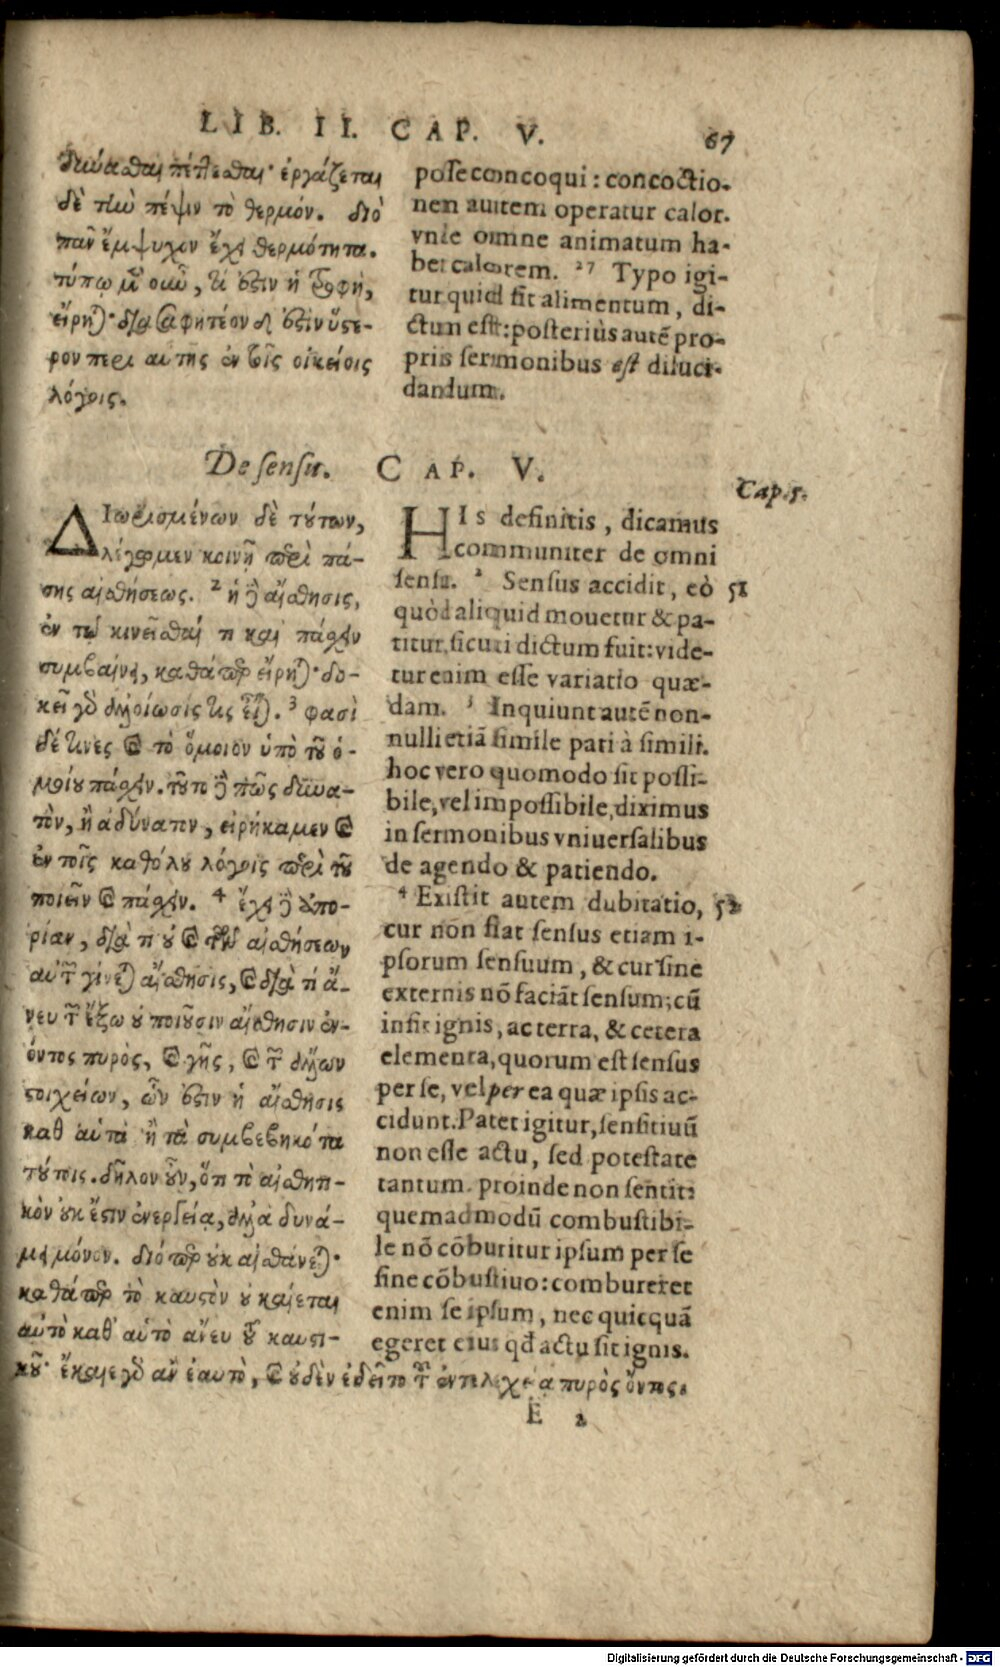 LIB. II. CAP. V. 67
δύναϑαι πέπεϑαι· ἐργάζεται
δὲ τὴν πέψιν τὸ θερμόν. διὸ
πᾶν ἔμψυχον ἔχει θερμότητα.
τύπῳ μὲν οὖν, τί ἐστιν ἡ τροφὴ,
εἴρηται· διασαφητέον δ' ἐστὶν ὕστε-
ρον περὶ αὐτῆς ἐν τοῖς οἰκείοις
λόγοις.
posse concoqui: concoctio-
nem autem operatur calor.
vnde omne animatum ha-
bet calorem. 27 Typo igi-
tur quid sit alimentum, di-
ctum est: posteriùs autē pro-
priis sermonibus est diluci-
dandum.
De sensu. CAP. V.
Cap. 5.
ΔΙωρισμένων δὲ τούτων,
λέγωμεν κοινῇ περὶ πά-
σης αἰσθήσεως. 2 ἡ δ' αἴσθησις,
ἐν τῷ κινεῖσθαί τι καὶ πάσχειν
συμβαίνει, καθάπερ εἴρηται· δο-
κεῖ γὰρ ἀλλοίωσίς τις εἶναι. 3 φασὶ
δέ τινες καὶ τὸ ὅμοιον ὑπὸ τοῦ ὁ-
μοίου πάσχειν. τοῦτο δὲ πῶς δυνα-
τὸν, ἢ ἀδύνατον, εἰρήκαμεν καὶ
ἐν τοῖς καθόλου λόγοις περὶ τοῦ
ποιεῖν καὶ πάσχειν. 4 ἔχει δὲ ἀπο-
ρίαν, διὰ τί οὐ καὶ τῶν αἰσθήσεων
αὐτῶν γίνεται αἴσθησις, καὶ διὰ τί ἄ-
νευ τῶν ἔξω οὐ ποιοῦσιν αἴσθησιν ἐν-
όντος πυρὸς, καὶ γῆς, καὶ τῶν ἄλλων
στοιχείων, ὧν ἐστὶν ἡ αἴσθησις
καθ' αὑτὰ ἢ τὰ συμβεβηκότα
τούτοις. δῆλον οὖν, ὅτι τὸ αἰσθητι-
κὸν οὐκ ἔστιν ἐνεργείᾳ, ἀλλὰ δυνά-
μει μόνον. διόπερ οὐκ αἰσθάνεται·
καθάπερ τὸ καυστὸν οὐ καίεται
αὐτὸ καθ' αὑτὸ ἄνευ τοῦ καυστι-
κοῦ· ἔκαιε γὰρ ἂν ἑαυτὸ, καὶ οὐδὲν ἐδεῖτο τοῦ ἐντελεχείᾳ πυρὸς ὄντος.
HIs definitis, dicamus
communiter de omni
sensu. 2 Sensus accidit, eò 51
quòd aliquid mouetur & pa-
titur, sicuti dictum fuit: vide-
tur enim esse variatio quæ-
dam. 3 Inquiunt autē non-
nulli etiā simile pati à simili.
hoc vero quomodo sit possi-
bile, vel impossibile, diximus
in sermonibus vniuersalibus
de agendo & patiendo.
4 Existit autem dubitatio, 52
cur non fiat sensus etiam i-
psorum sensuum, & cur sine
externis nō faciāt sensum; cū
insit ignis, ac terra, & cetera
elementa, quorum est sensus
per se, vel per ea quæ ipsis ac-
cidunt. Patet igitur, sensitiuū
non esse actu, sed potestate
tantum. proinde non sentit:
quemadmodū combustibi-
le nō cōburitur ipsum per se
sine cōbustiuo: combureret
enim se ipsum, nec quicquā
egeret eius qđ actu sit ignis.
E 2
Digitalisierung gefördert durch die Deutsche Forschungsgemeinschaft - DFG